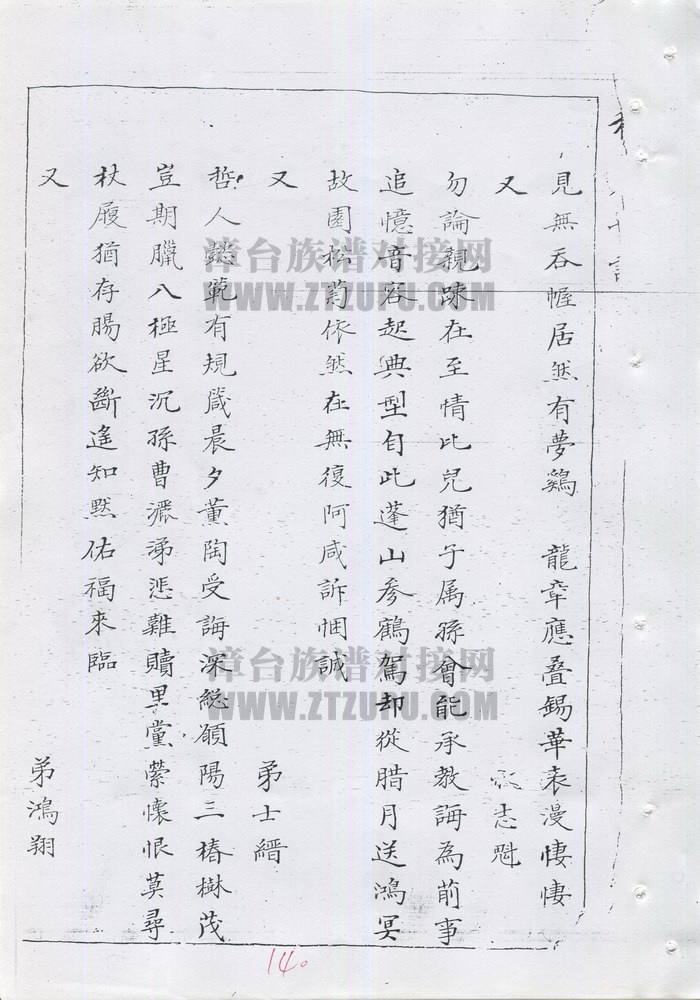 見無吞幄居然有夢鷄 龍章應叠錫華表漫悽悽
又 志魁
勿論親踈在至情比兒猶子属孫曾能承教誨為前事
追憶音容起典型自此蓬山參鶴駕却從腊月送鴻冥
故園松菊依然在無復阿咸訴悃誠
又 弟士縉
哲人懿範有規箴晨夕薰陶受誨深総頋陽三椿樹茂
豈期臘八極星沉孫曹濺涕悲難贖里黨縈懐恨莫尋
杖履猶存腸欲斷遙知默佑福來臨
又 弟鴻翔
漳台族谱对接网
WWW.ZTZUPU.COM
漳台族谱对接网
WWW.ZTZUPU.COM
140